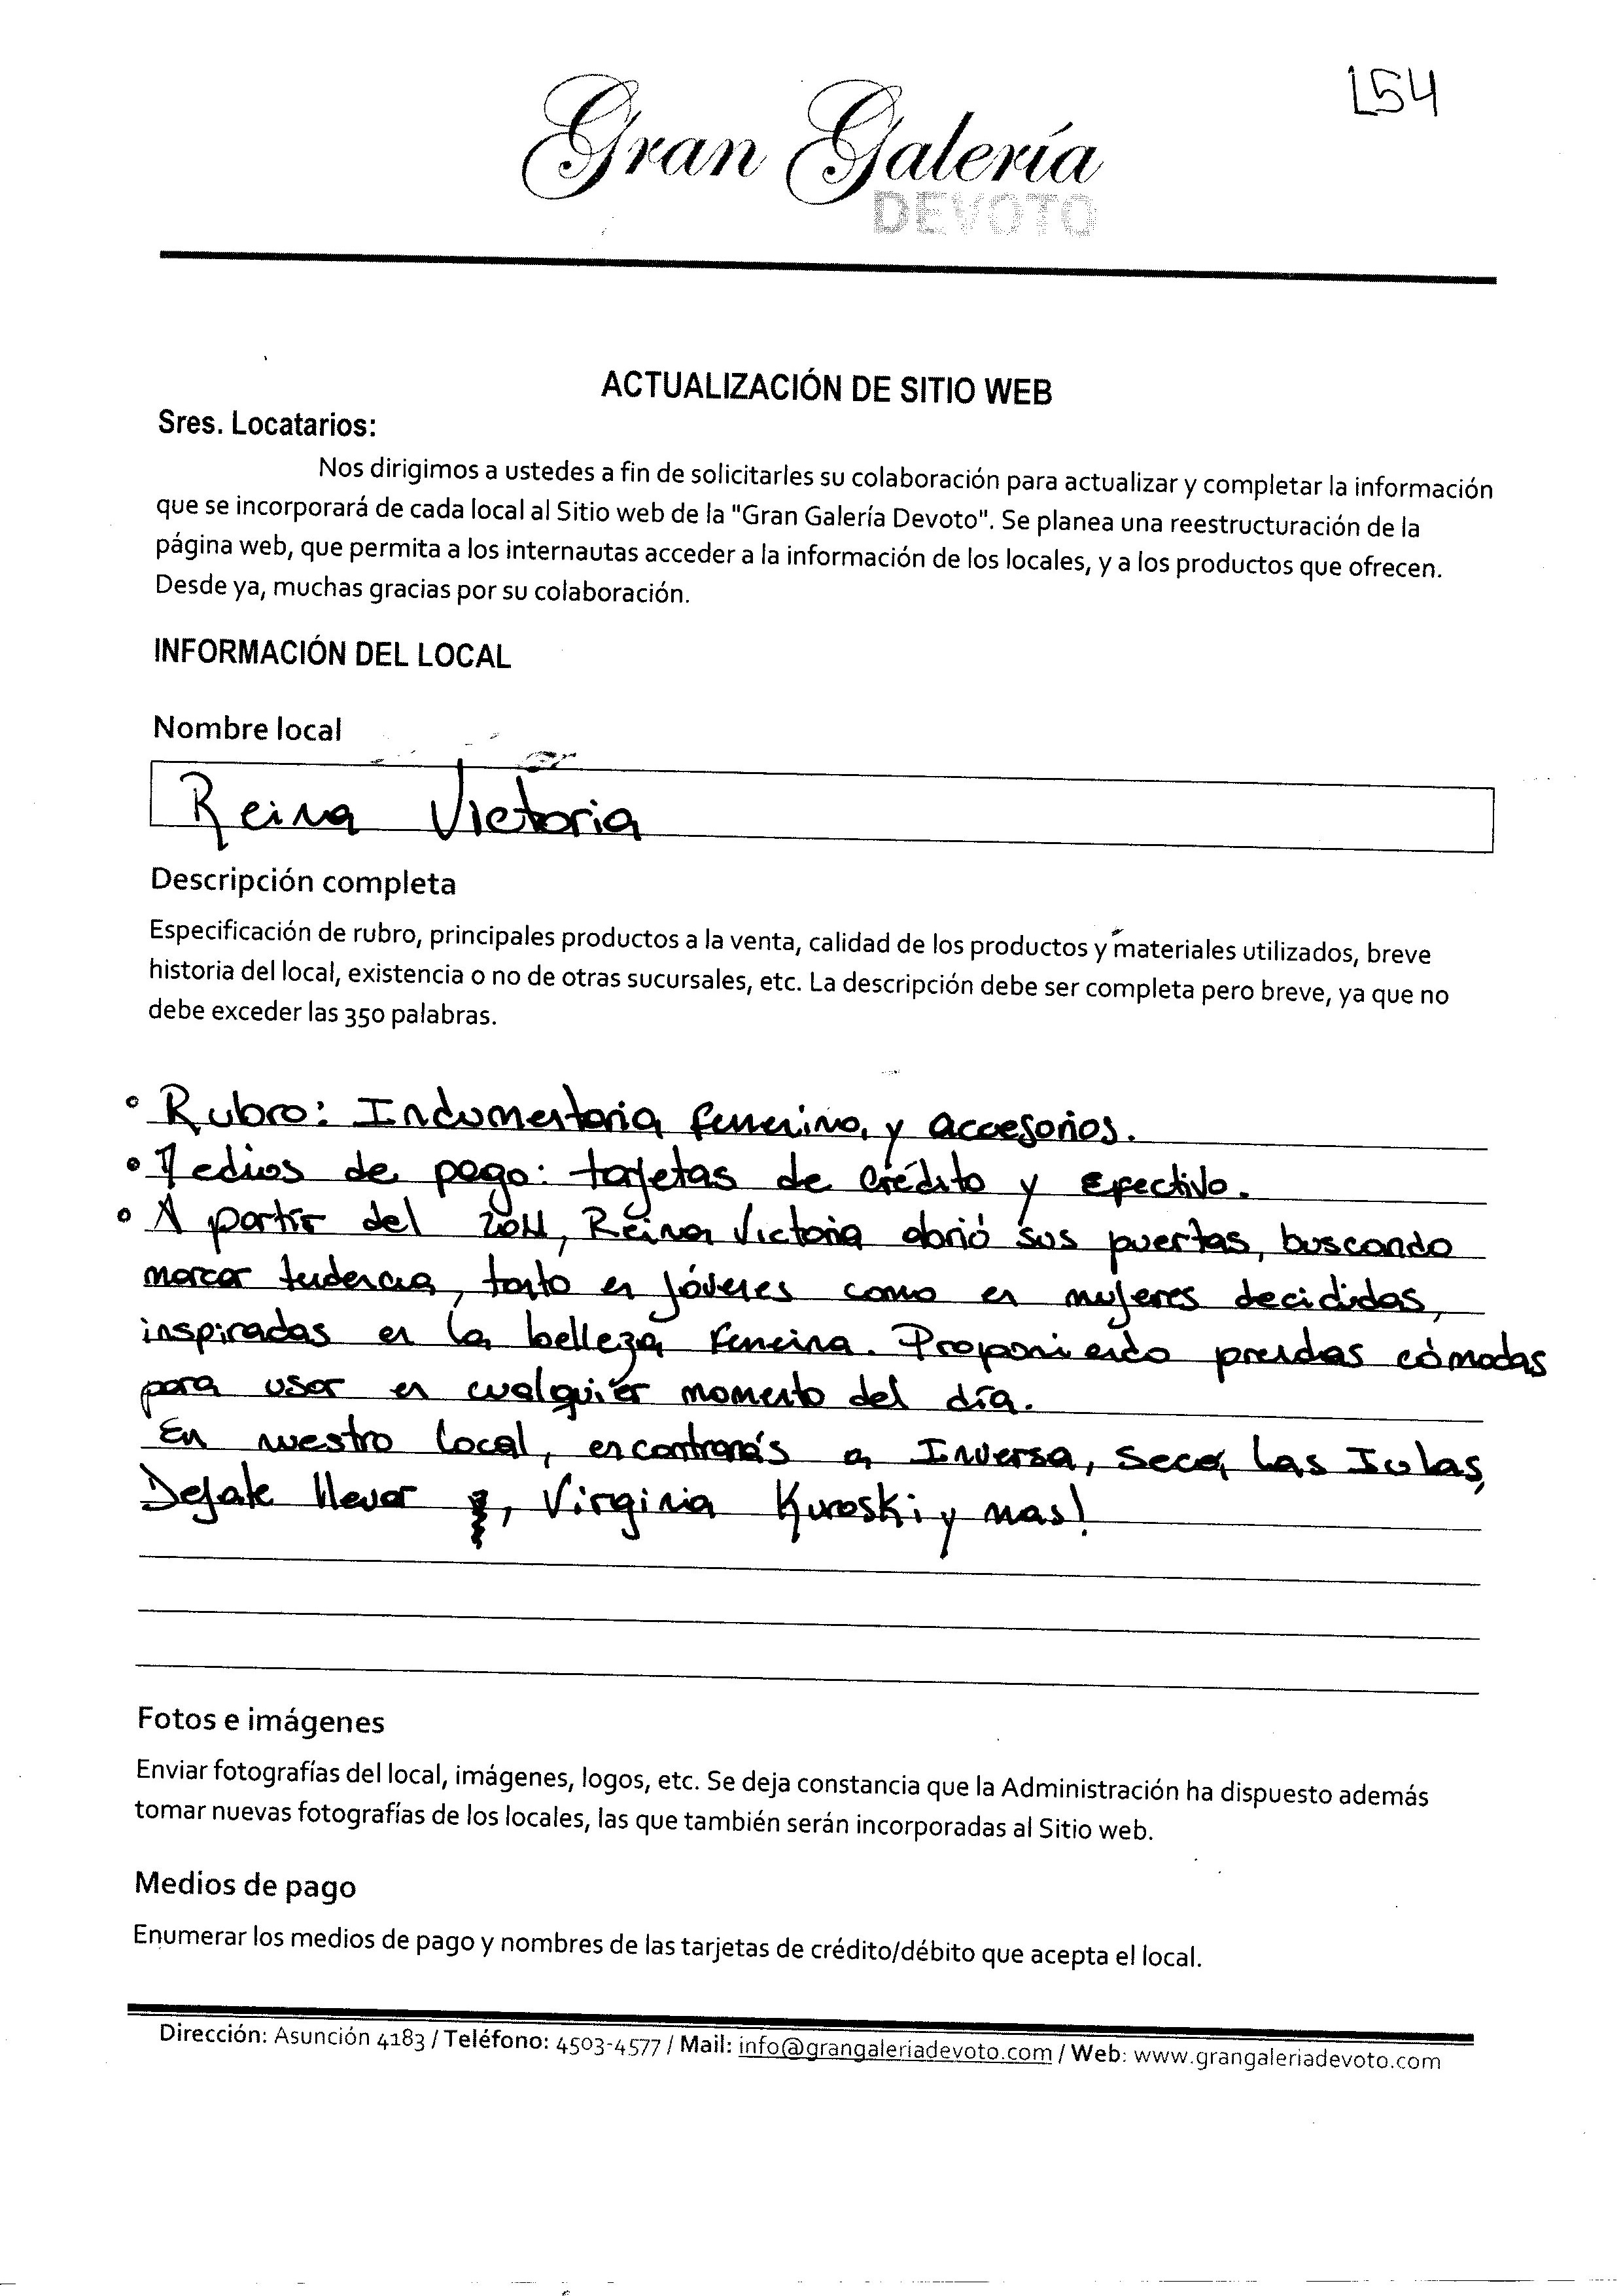 L54
Gran Galería
DEVOTO
ACTUALIZACIÓN DE SITIO WEB
Sres. Locatarios:
Nos dirigimos a ustedes a fin de solicitarles su colaboración para actualizar y completar la información
que se incorporará de cada local al Sitio web de la "Gran Galería Devoto". Se planea una reestructuración de la
página web, que permita a los internautas acceder a la información de los locales, y a los productos que ofrecen.
Desde ya, muchas gracias por su colaboración.
INFORMACIÓN DEL LOCAL
Nombre local
Reina Victoria
Descripción completa
Especificación de rubro, principales productos a la venta, calidad de los productos y materiales utilizados, breve
historia del local, existencia o no de otras sucursales, etc. La descripción debe ser completa pero breve, ya que no
debe exceder las 350 palabras.
° Rubro: Indumentaria femenina, y accesorios.
° Medios de pago: tarjetas de crédito y efectivo.
° A partir del 2011, Reina Victoria abrió sus puertas, buscando
marcar tendencia, tanto en jóvenes como en mujeres decididas,
inspiradas en la belleza femeina. Proponiendo prendas cómodas
para usar en cualquier momento del día.
En nuestro local, encontrarás a Inversa, Seco, Las Iulas,
Dejate llevar , Virginia Kuroski y mas!
Fotos e imágenes
Enviar fotografías del local, imágenes, logos, etc. Se deja constancia que la Administración ha dispuesto además
tomar nuevas fotografías de los locales, las que también serán incorporadas al Sitio web.
Medios de pago
Enumerar los medios de pago y nombres de las tarjetas de crédito/débito que acepta el local.
Dirección: Asunción 4183 / Teléfono: 4503-4577 / Mail: info@grangaleriadevoto.com / Web: www.grangaleriadevoto.com